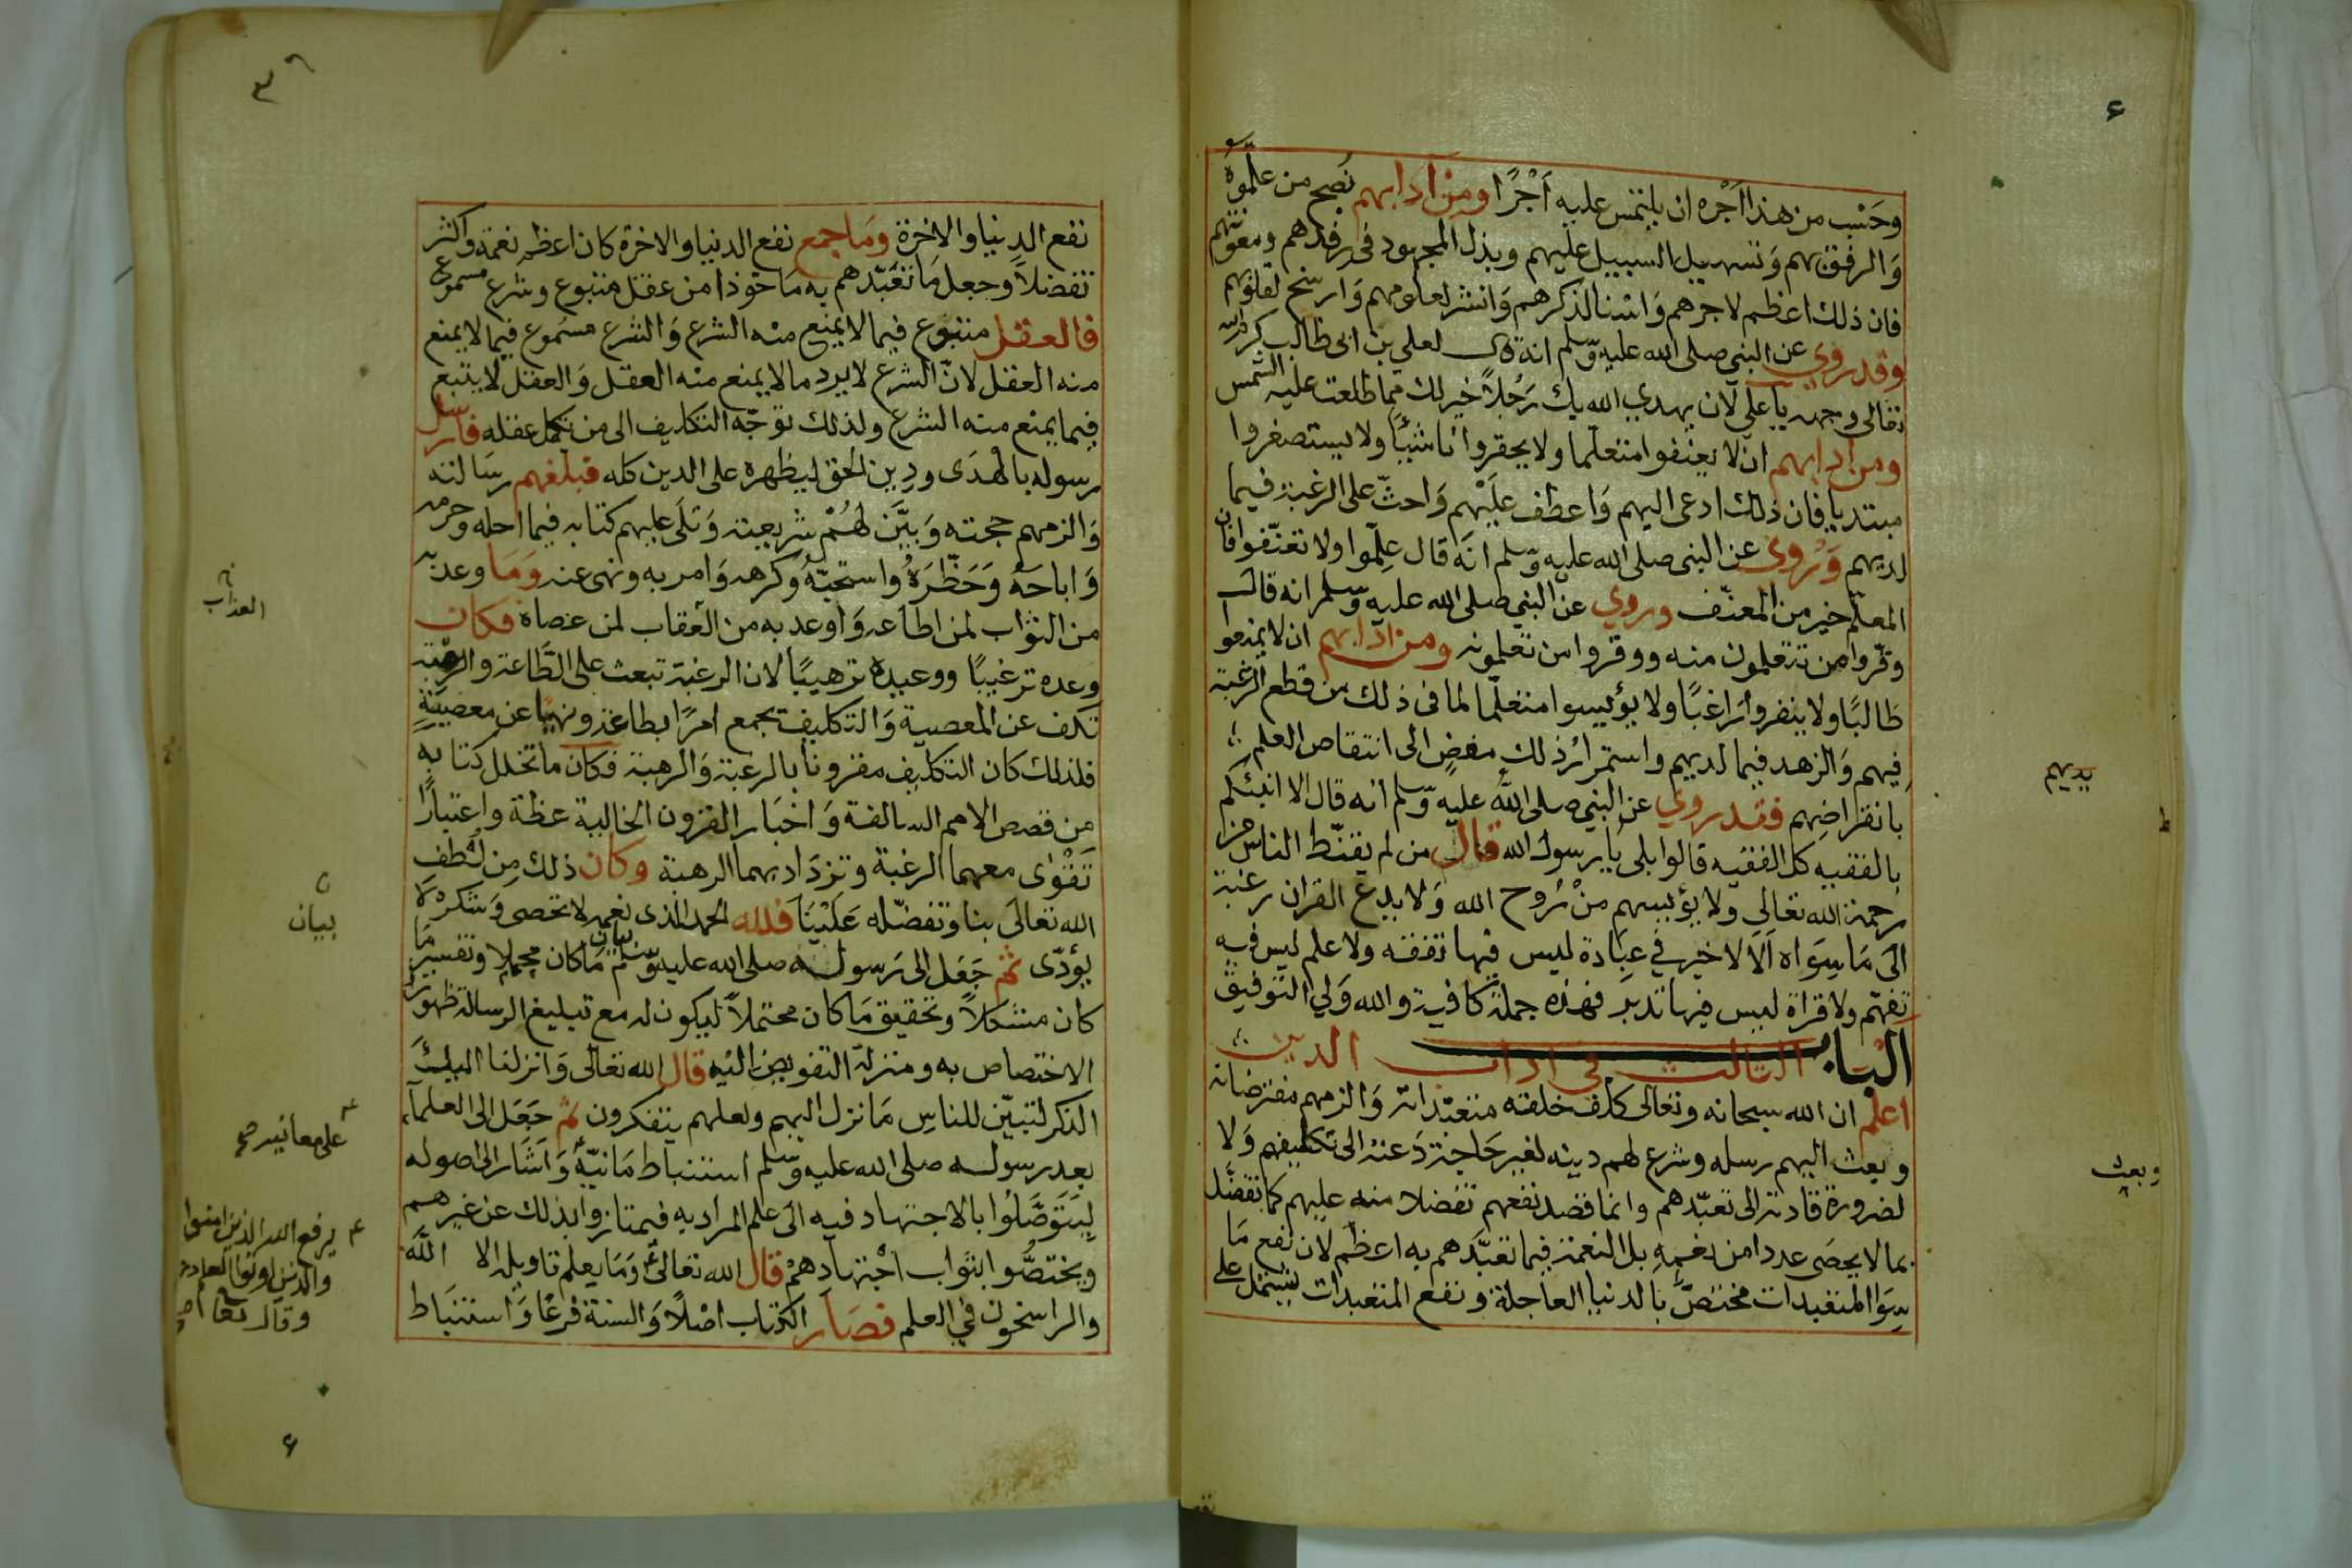 وحسب من هذا اجره ان يلتمس عليه أجرًا ومن ادابهم نصح من علموه
والرفق بهم وتسهيل السبيل عليهم وبذل المجهود في رفدهم ومعونتهم
فان ذلك اعظم لاجرهم واسنا لذكرهم وانشر لعلومهم وارسخ لعلومهم
وقد روي عن النبي صلى الله عليه وسلم انه قال لعلي بن ابي طالب كرم الله
تعالى وجهه يا علي لان يهدي الله بك رجلاً خير لك مما طلعت عليه الشمس
ومن ادابهم ان لا يعنفوا متعلما ولا يحقروا ناشئًا ولا يستصغروا
مبتديا فان ذلك ادعى اليهم واعطف عليهم واحثّ على الرغبة فيما
لديهم وروي عن النبي صلى الله عليه وسلم انه قال علّموا ولا تعنّفوا فان
المعلّم خير من المعنّف وروي عن النبي صلى الله عليه وسلم انه قال
وقّروا من تتعلمون منه ووقروا من تعلمونه ومن ادابهم ان لا يمنعوا
طالبًا ولا ينفروا راغبًا ولا يؤيسوا متعلّما لما في ذلك من قطع الرغبة
فيهم والزهد فيما لديهم واستمرار ذلك مفض الى انتقاص العلم
بانقراضهم فقد روي عن النبي صلى الله عليه وسلم انه قال الا انبئكم
بالفقيه كل الفقيه قالوا بلى يا رسول الله قال من لم يقنّط الناس من
رحمة الله تعالى ولا يؤيسهم من روح الله ولا يدع القران رغبة
الى ما سواه الا لا خير في عبادة ليس فيها تفقه ولا علم ليس فيه
تفهّم ولا قراة ليس فيها تدبر فهذه جملة كافية والله ولي التوفيق
الباب الثالث في اداب الدين
اعلم ان الله سبحانه وتعالى كلف خلقه متعبّداته والزمهم مفترضاته
وبعث اليهم رسله وشرع لهم دينه لغير حاجة دعته الى تكليفهم ولا
لضرورة قادته الى تعبّدهم وانما قصد نفعهم تفضلا منه عليهم كما تفضّل
بما لا يحصى عددا من نعمه بل النعمة فيما تعبّدهم به اعظم لان نفع ما
سوا المتعبدات مختصّ بالدنيا العاجلة ونفع المتعبدات يشتمل على
يديهم
وبعث
نفع الدنيا والاخرة وما جمع نفع الدنيا والاخرة كان اعظم نعمة واكثر
تفضلاً وجعل ما تعبّدهم به ماخوذا من عقل متبوع وشرع مسموع
فالعقل متبوع فيما لا يمنع منه الشرع والشرع مسموع فيما لا يمنع
منه العقل لانّ الشرع لا يرد ما لا يمنع منه العقل والعقل لا يتبع
فيما يمنع منه الشرع ولذلك توجّه التكليف الى من تكمل عقله فارسل
رسوله بالهدى ودين الحق ليظهره على الدين كله فبلغهم رسالته
والزمهم حجته وبيّن لهم شريعته وتلى عليهم كتابه فيما احله وحرمه
واباحه وحظره واستحبّه وكرهه وامر به ونهى عنه وما وعد به
من الثواب لمن اطاعه واوعد به من العقاب لمن عصاه فكان
وعده ترغيبًا ووعيده ترهيبًا لان الرغبة تبعث على الطاعة والرهبة
تكف عن المعصية والتكليف يجمع امرًا بطاعة ونهيًا عن معصية
فلذلك كان التكليف مقرونا بالرغبة والرهبة فكان ما تخلل كتابه
من قصص الامم السالفة واخبار القرون الخالية عظة واعتبارًا
تقوى معهما الرغبة وتزداد بهما الرهبة وكان ذلك من لطف
الله تعالى بنا وتفضّله علينا فلله الحمد الذي نعمه لا تحصى وشكره لا
يؤدّى ثم جعل الى رسوله صلى الله عليه وسلم بيان ما كان مجملا وتفسير ما
كان مشكلاً وتحقيق ما كان محتملاً ليكون له مع تبليغ الرسالة ظهور
الاختصاص به ومنزلة التفويض اليه قال الله تعالى وانزلنا اليك
الذكر لتبيّن للناس ما نزل اليهم ولعلهم يتفكرون ثم جعل الى العلماء
بعد رسوله صلى الله عليه وسلم استنباط ما نبّه واشار الى اصوله
ليتوصّلوا بالاجتهاد فيه الى علم المراد به فيمتازوا بذلك عن غيرهم
ويختصّوا بثواب اجتهادهم قال الله تعالى وما يعلم تاويله الا الله
والراسخون في العلم فصار الكتاب اصلاً والسنة فرعًا واستنباط
العذاب
بيان
على معانيه صح
يرفع الله الذين امنوا
والذين اوتوا العلم درجات
وقال تعالى